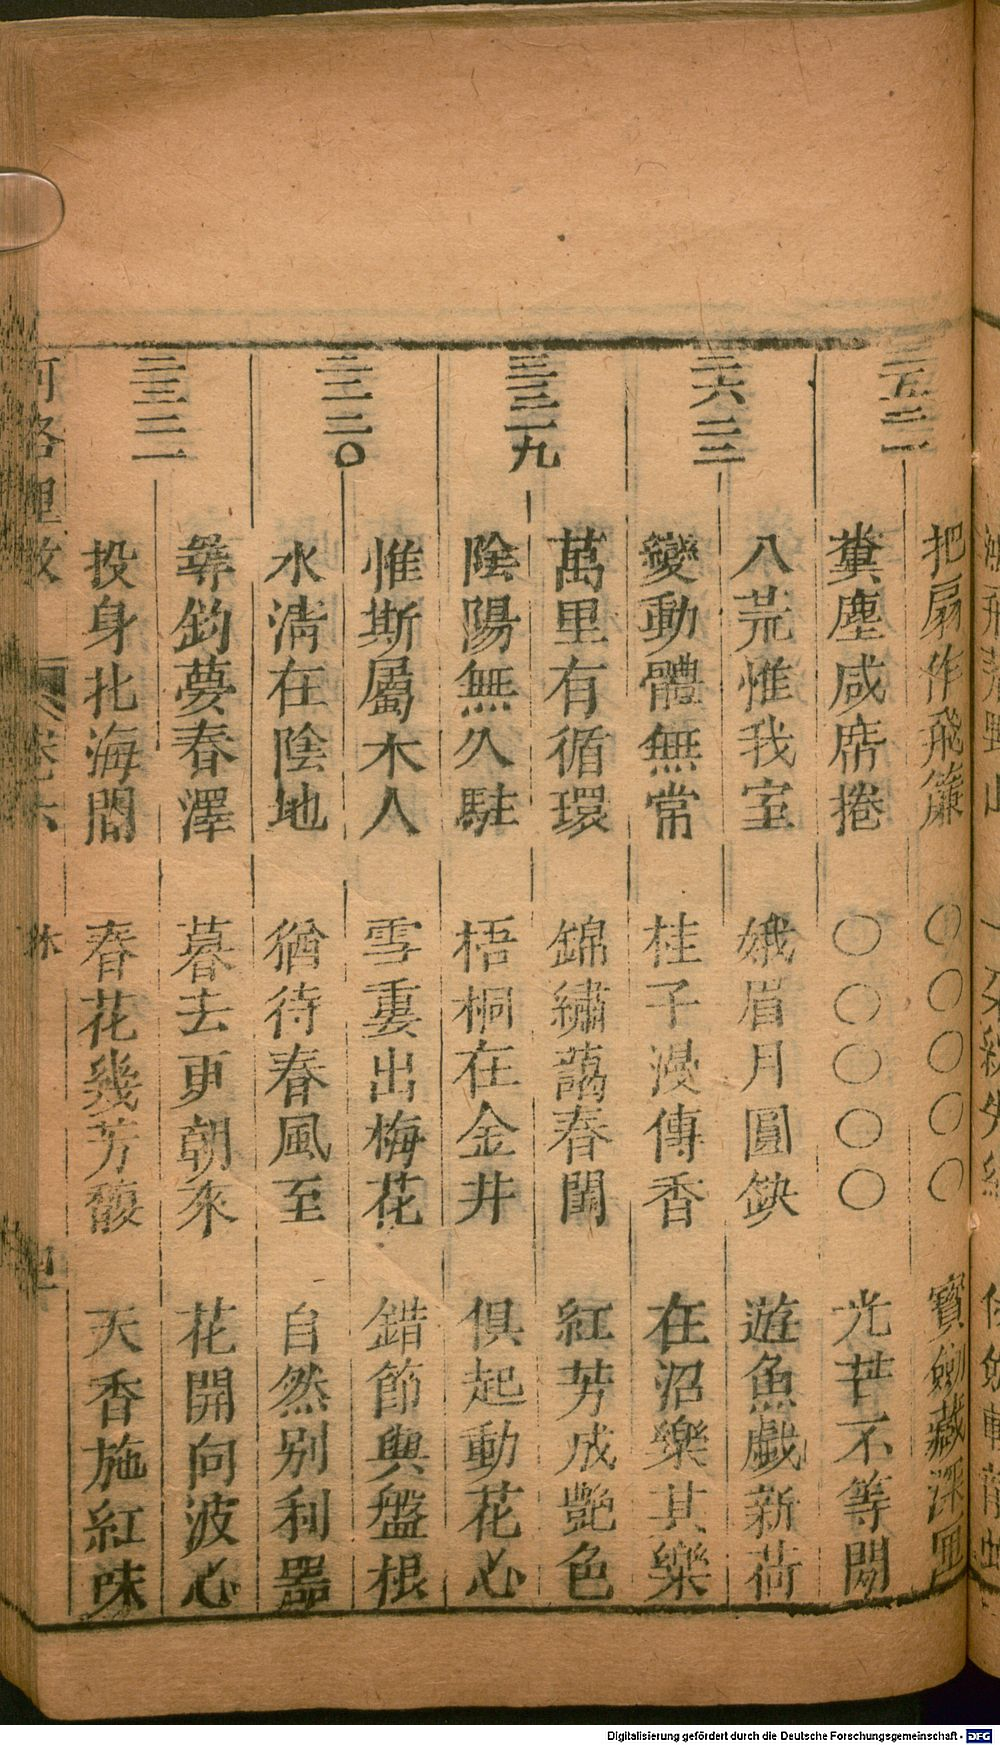 三五二二
把扇作飛簾 〇〇〇〇〇 寶劍藏深匣
糞塵咸席捲 〇〇〇〇〇 光芒不等閑
三六二三
八荒惟我室 娥眉月圓缺 遊魚戲新荷
變動體無常 桂子漫傳香 在沼樂其樂
萬里有循環 錦繡藹春闈 紅芳成艷色
九
陰陽無久駐 梧桐在金井 俱起動花心
惟斯屬木人 雪裏出梅花 錯節與盤根
二〇
水清在陰地 猶待春風至 自然別利器
彛鈞夢春澤 暮去更朝來 花開向波心
投身北海間 春花幾芳馥 天香施紅味
河洛理數
卷六
Digitalisierung gefördert durch die Deutsche Forschungsgemeinschaft - DFG